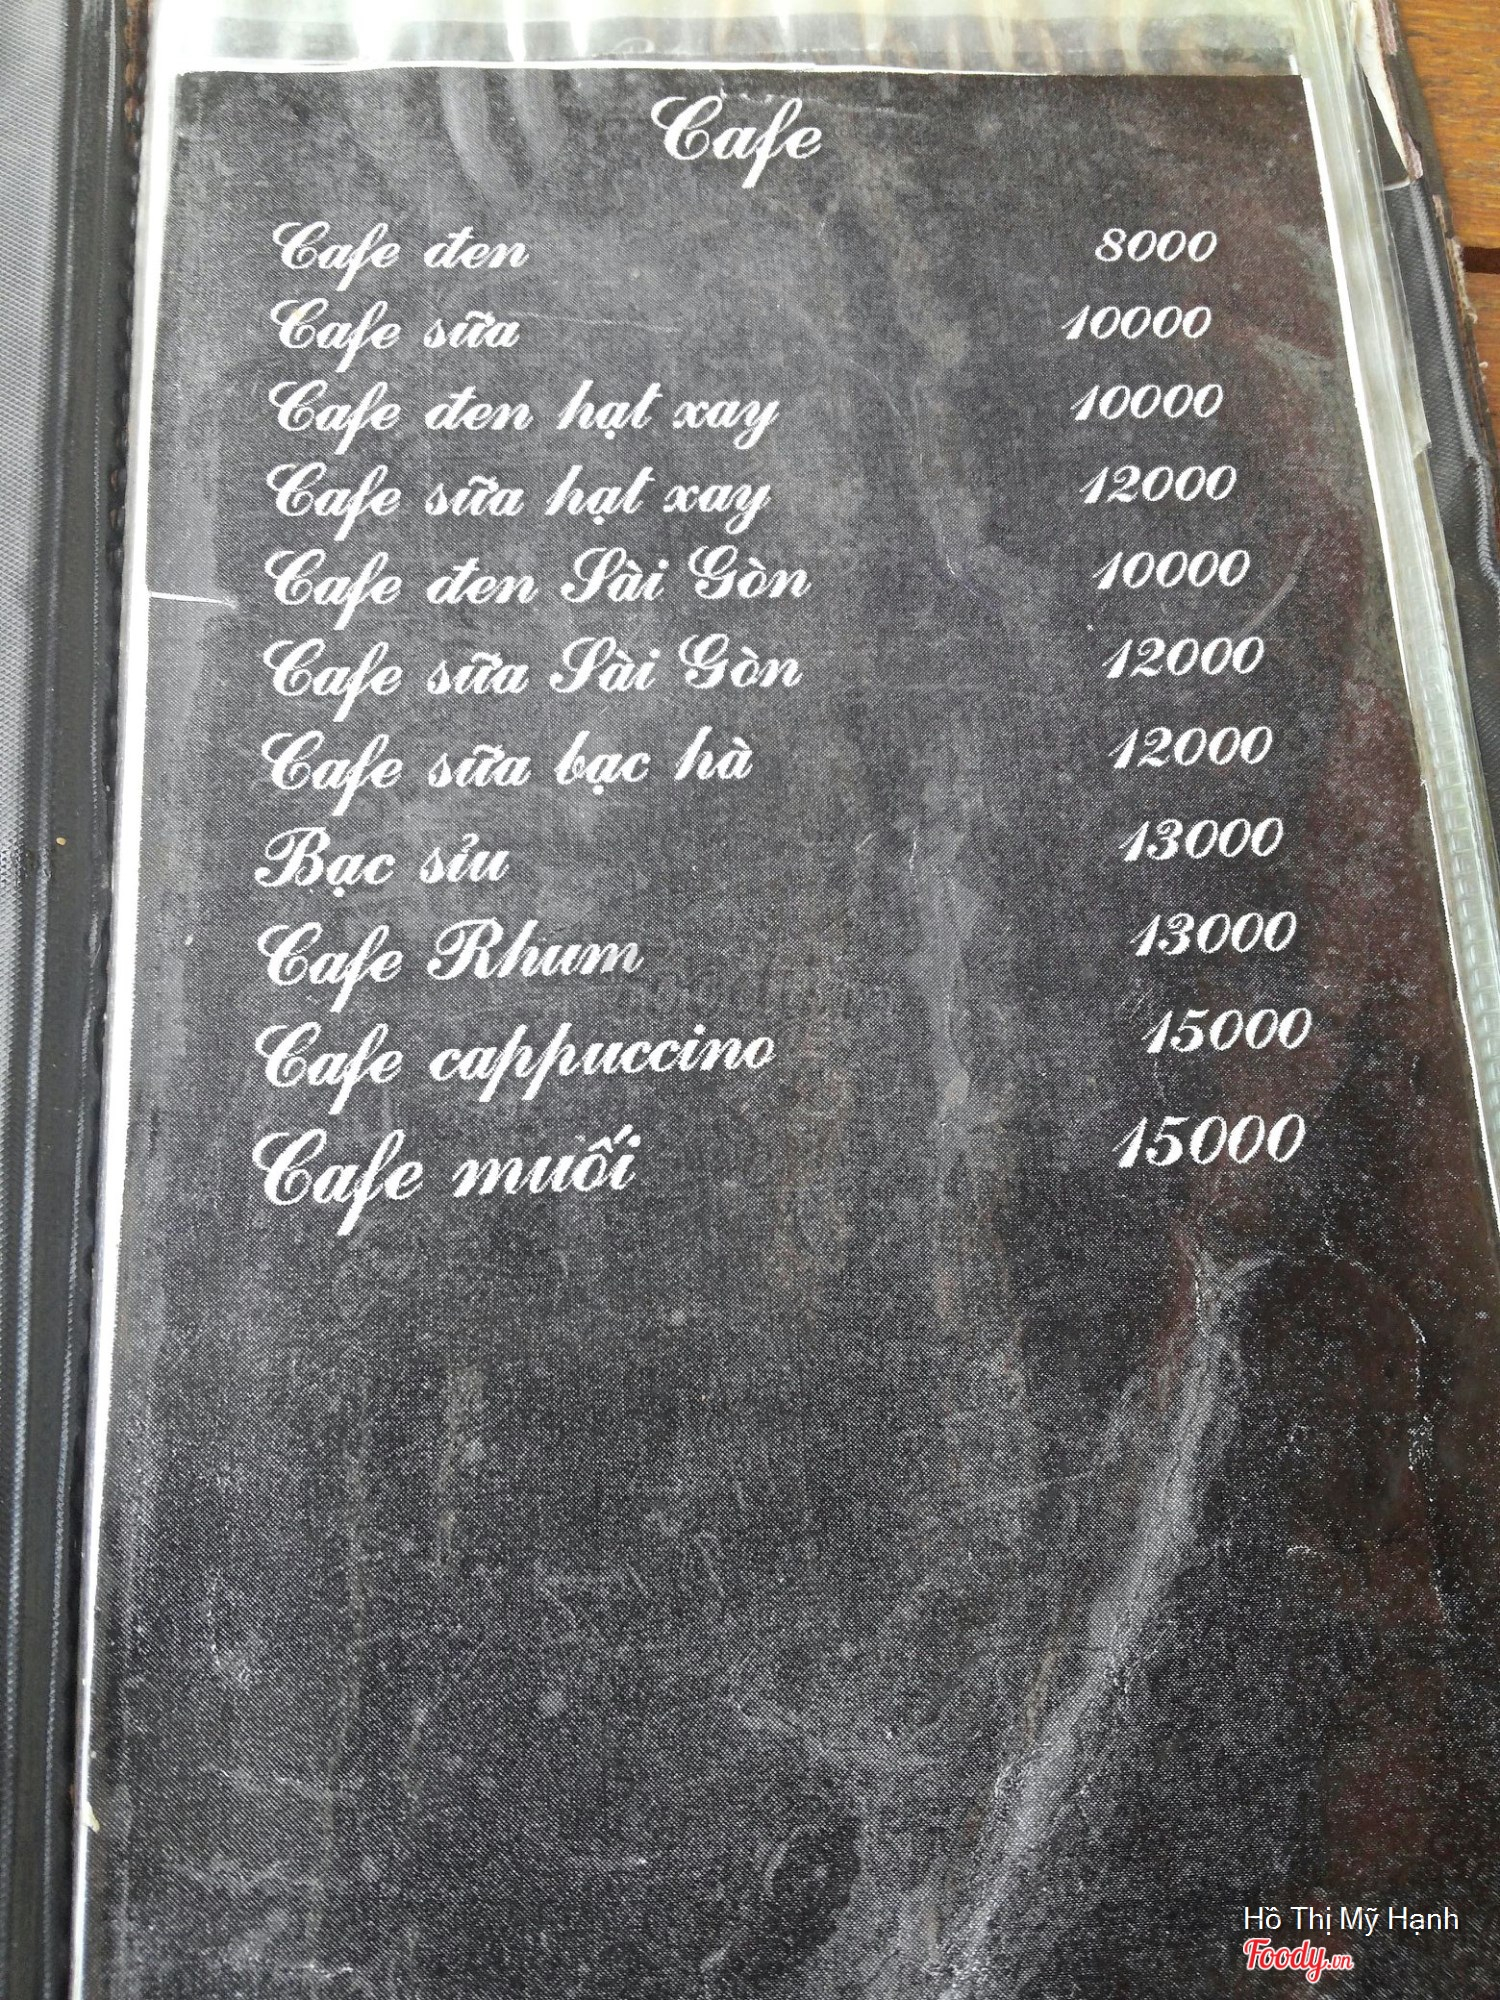 Cafe
Cafe đen 8000
Cafe sữa 10000
Cafe đen hạt xay 10000
Cafe sữa hạt xay 12000
Cafe đen Sài Gòn 10000
Cafe sữa Sài Gòn 12000
Cafe sữa bạc hà 12000
Bạc sỉu 13000
Cafe Rhum 13000
Cafe cappuccino 15000
Cafe muối 15000
Hồ Thị Mỹ Hạnh
Foody.vn